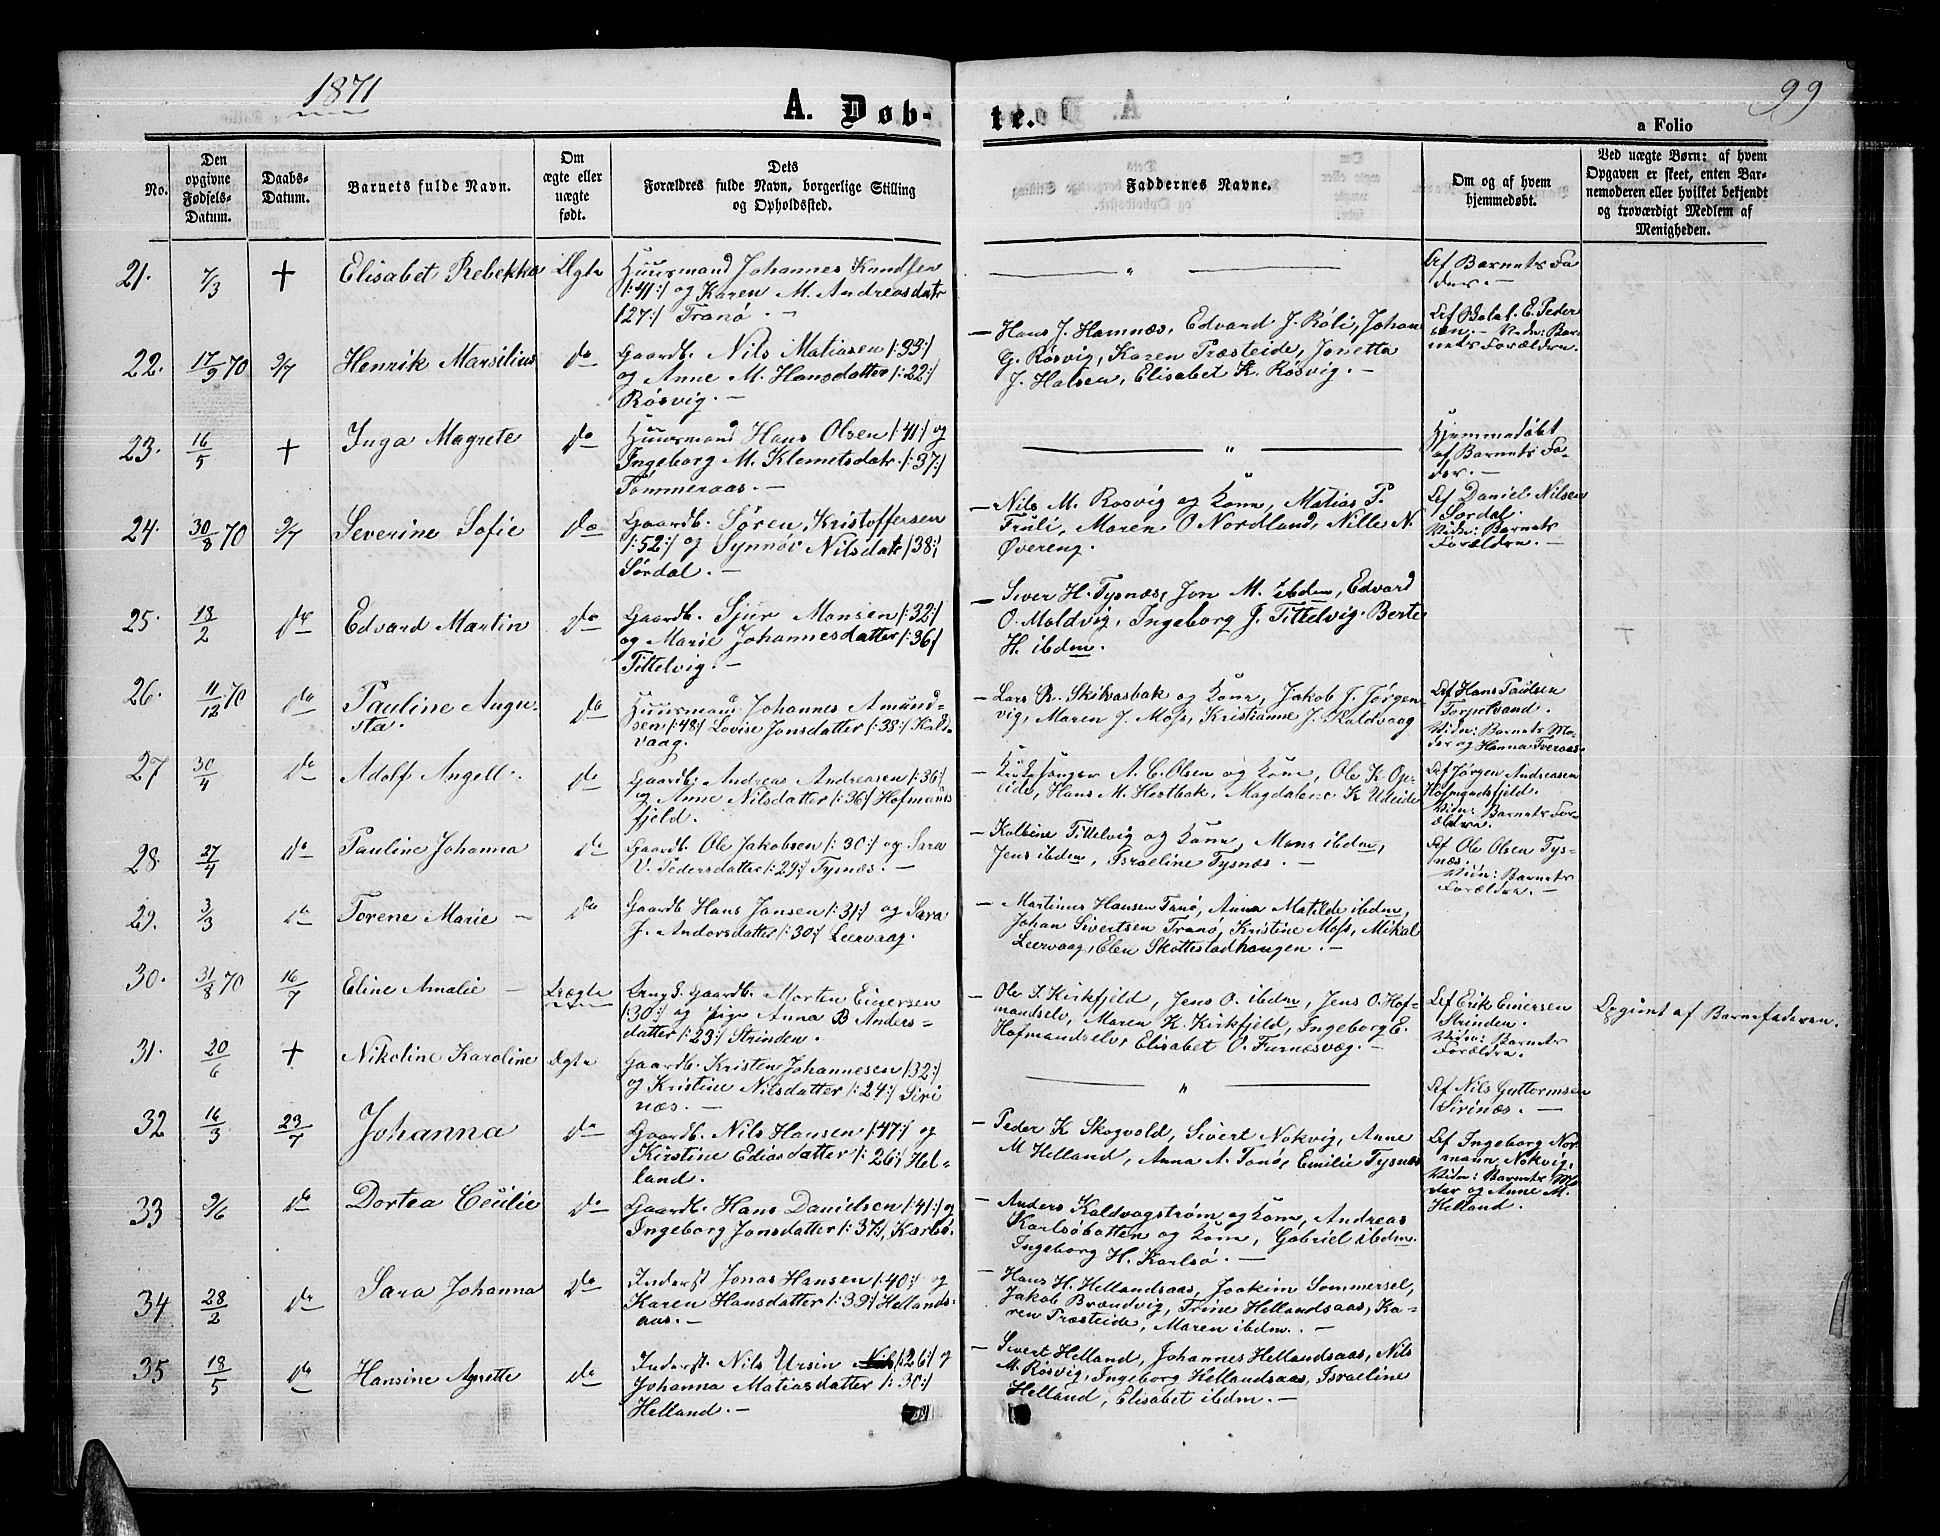 1871
99
A. Døb-
te.
a Folio
No.
Den opgivne Fødsels-Datum.
Daabs-Datum.
Barnets fulde Navn.
Om ægte eller uægte født.
Dets Forældres fulde Navn, borgerlige Stilling og Opholdssted.
Faddernes Navne.
Om og af hvem hjemmedøbt.
Ved uægte Børn: af hvem Opgaven er skeet, enten Barnemoderen eller hvilket bekjendt og troværdigt Medlem af Menigheden.
21. 7/3 + Elisabet Rebekka Ægte
Huusmand Johannes Knudsen
/:41:/ og Karen M. Andreasdatr
/27:/ Tranø. —
— „ —
Af Barnets Fa-
der. —
22. 17/9 70 9/7 Henrik Marsilius do
Gaardb. Nils Matiasen /:33:/
og Anne M. Hansdatter /:22:/
Røsvig. —
— Hans J. Hamnæs, Edvard J. Røli, Johan
G. Røsvig, Karen Præsteide, Jonetta
J. Halsen, Elisabet K. Røsvig. —
Af Balat. E. Peder
sen. — Vidn: Bar-
nets Forældre.
23. 16/5 + Inga Magrete do
Huusmand Hans Olsen /:41:/ og
Ingeborg M. Klemetsdatr. /:37:/
Tømmeraas. —
— „ —
Hjemmedøbt
af Barnets Fa-
der. —
24. 30/8 70 9/7 Severine Sofie do
Gaardb. Søren Kristoffersen
/:52:/ og Synnøv Nilsdatr /38:/
Sørdal. —
— Nils M. Rosvig og Kone, Matias P.
Truli, Maren O Nordland, Nille N.
Øvereng.
Af Daniel Nilsen
Sørdal.
Vidn: Barnets
Forældre. —
25. 13/2 do Edvard Martin do
Gaardb. Sjur Monsen /:32:/
og Marie Johannesdatter /:36/
Tittelvig. —
— Siver H. Tysnæs, Jon M. ibdm, Edvard
O. Moldvig, Ingeborg J. Tittelvig. Berte
H. ibdm.
26. 11/12 70 do Pauline Augu-
sta. do
Huusmand Johannes Amund-
sen /:48:/ Lovise Jonsdatter /:38:/ Kald-
vaag.
— Lars R. Skikvasbak og Kone, Jakob J. Jørgen
vig, Maren J. Mofs, Kristianne J. Kaldvaag
Af Hans Paulsen
Torpelsand.
Vidn: Barnets Mo-
der og Hanna Tveraas.
27 30/4 do Adolf Angell. do
Gaardb. Andreas Andreasen /:36:/
og Anne Nilsdatter /:36/ Hofmands
fjeld.
— Kirkesanger A. C. Olsen og Kone, Ole K Op-
eide, Hans M. Hestbak, Magdalene K Udeide
Af Jørgen Andreasen
Hofmandsfjeld.
Vidn: Barnets For-
ældre.
28. 27/4 do Pauline Johanna do
Gaardb. Ole Jakobsen /:30:/ og Sara
V. Pedersdatter /:29:/ Tysnæs. —
— Kolbine Tittelvig og Kone, Mons ibdm,
Jens ibdm, Israeline Tysnæs. —
Af Ole Olsen Tys-
næs.
Vidn: Barnets
Forældre. —
29. 3/3 do Torene Marie — do
Gaardb Hans Jansen /:31:/ og Sara
J. Andorsdatter /:30:/ Leervaag.
— Martinus Hansen Tanø, Anna Matilde ibdm,
Johan Sivertsen Tranø, Kristine Mofs, Mikal
Leervaag, Elen Skottestadhaugen. —
30. 31/8 70 16/7 Eline Amalie — Uægte
Ungk. Gaardb. Morten Einersen
/:30:/ og Pige Anna B Anders-
datter /:23:/ Strinden.
— Ole I. Kirkfjeld, Jens O. ibdm, Jens O. Hof-
mandselv, Maren K. Kirkfjeld, Ingeborg E.
Hofmandselv, Elisabet O. Furnesvæg. —
Af Erik Einersen
Strinden.
Vidn: Barnets
Forældre.
Opgivet af Barnefaderen.
31. 20/6 + Nikoline Karoline Ægte
Gaardb. Kristen Johannesen /32:/
og Kristine Nilsdatter /:24:/ Siri
næs. —
— „ —
Af Nils Guttormsen
Sirinæs. —
32 16/3 23/7 Johanna do
Gaardb. Nils Hansen /:47:/ og
Kirstine Ediasdatter /:26:/ Hel-
land.
— Peder K Skogvold, Sivert Nokvig, Anne
M Helland, Anna A. Tanø, Emilie Tysnæs
Af Ingeborg Nor
mann, Nokvig,
Vidn: Barnets Mo
der og Anne M.
Helland.
33 9/6 do Dortea Cecilie do
Gaardb. Hans Danielsen /:41:/ og
Ingeborg Jonsdatter /:37:/, Karlsø.
— Anders Kaldvagstrøm og Kone, Andreas
Karlsøbotten og Kone, Gabriel ibdm.
Ingeborg H. Karlsø. —
34 28/2 do Sara Johanna do
Inderst Jonas Hansen /:40:/ og
Karen Hansdatter /:39:/ Hellands-
aas. —
— Hans H. Hellandsaas, Joakim Sommersel,
Jakob Brændvig, Trine Hellandsaas, Ka-
ren Præsteide, Maren ibdm. —
35 18/5 do Hansine Agrette do
Inderst. Nils Ursin /:26:/ og
Johanna Matiasdatter /:30:/
Helland. —
— Sivert Helland, Johannes Hellandsaas, Nils
M. Røsvig, Ingeborg Hellandsaas, Israeline
Helland, Elisabet ibdm. —